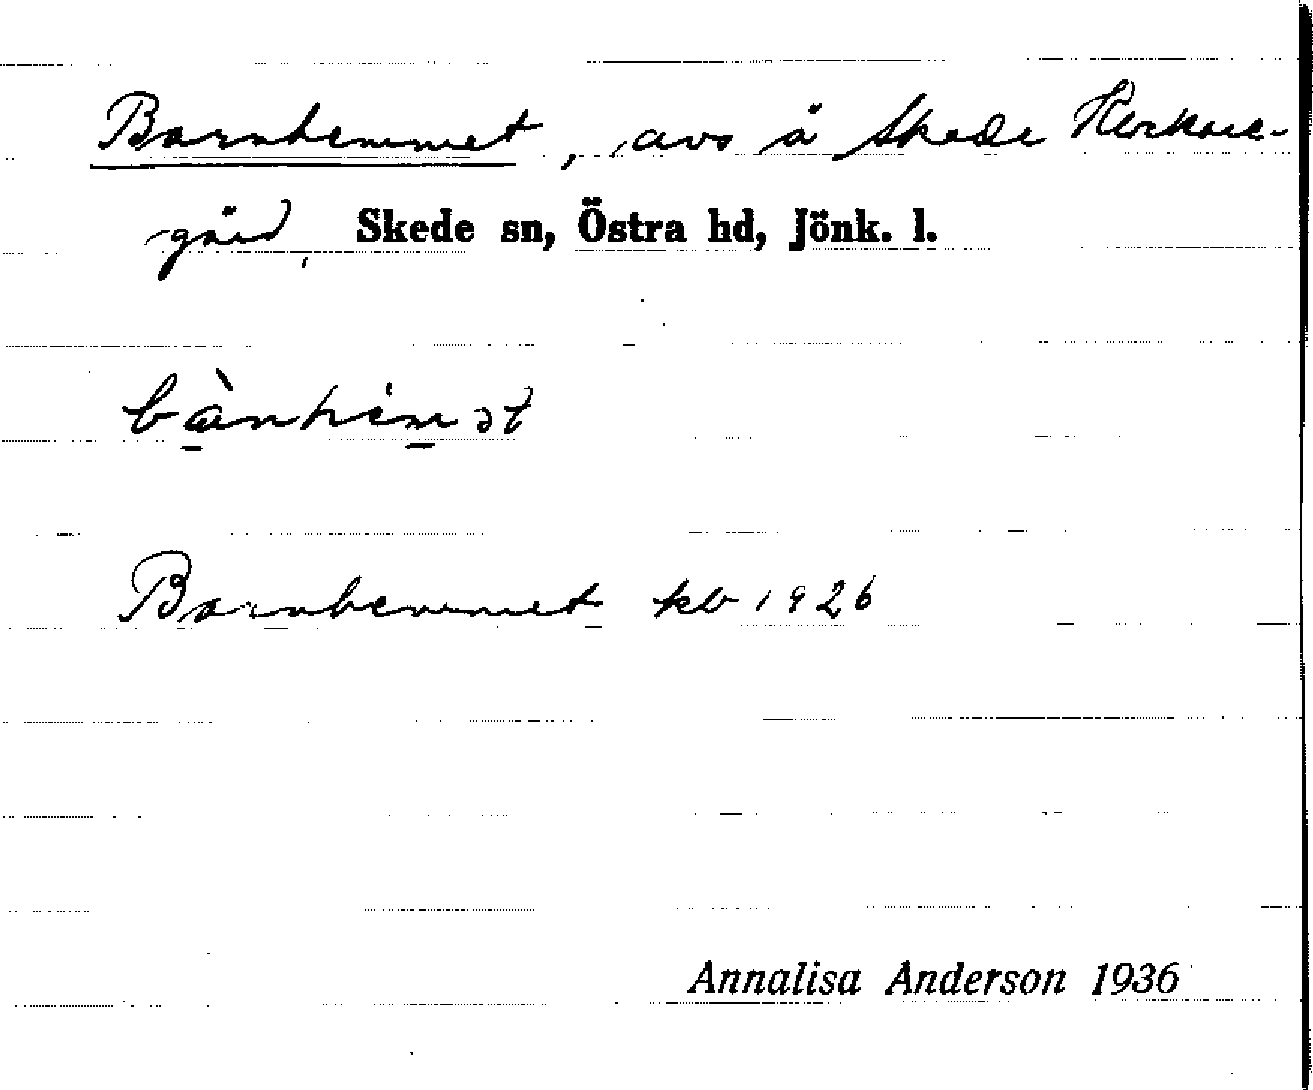 Barnhemmet, avs å Skede Klockare-
gård, Skede sn, Östra hd, Jönk. l.
bànhem ət
Barnhemmet kb 1926
Annalisa Anderson 1936